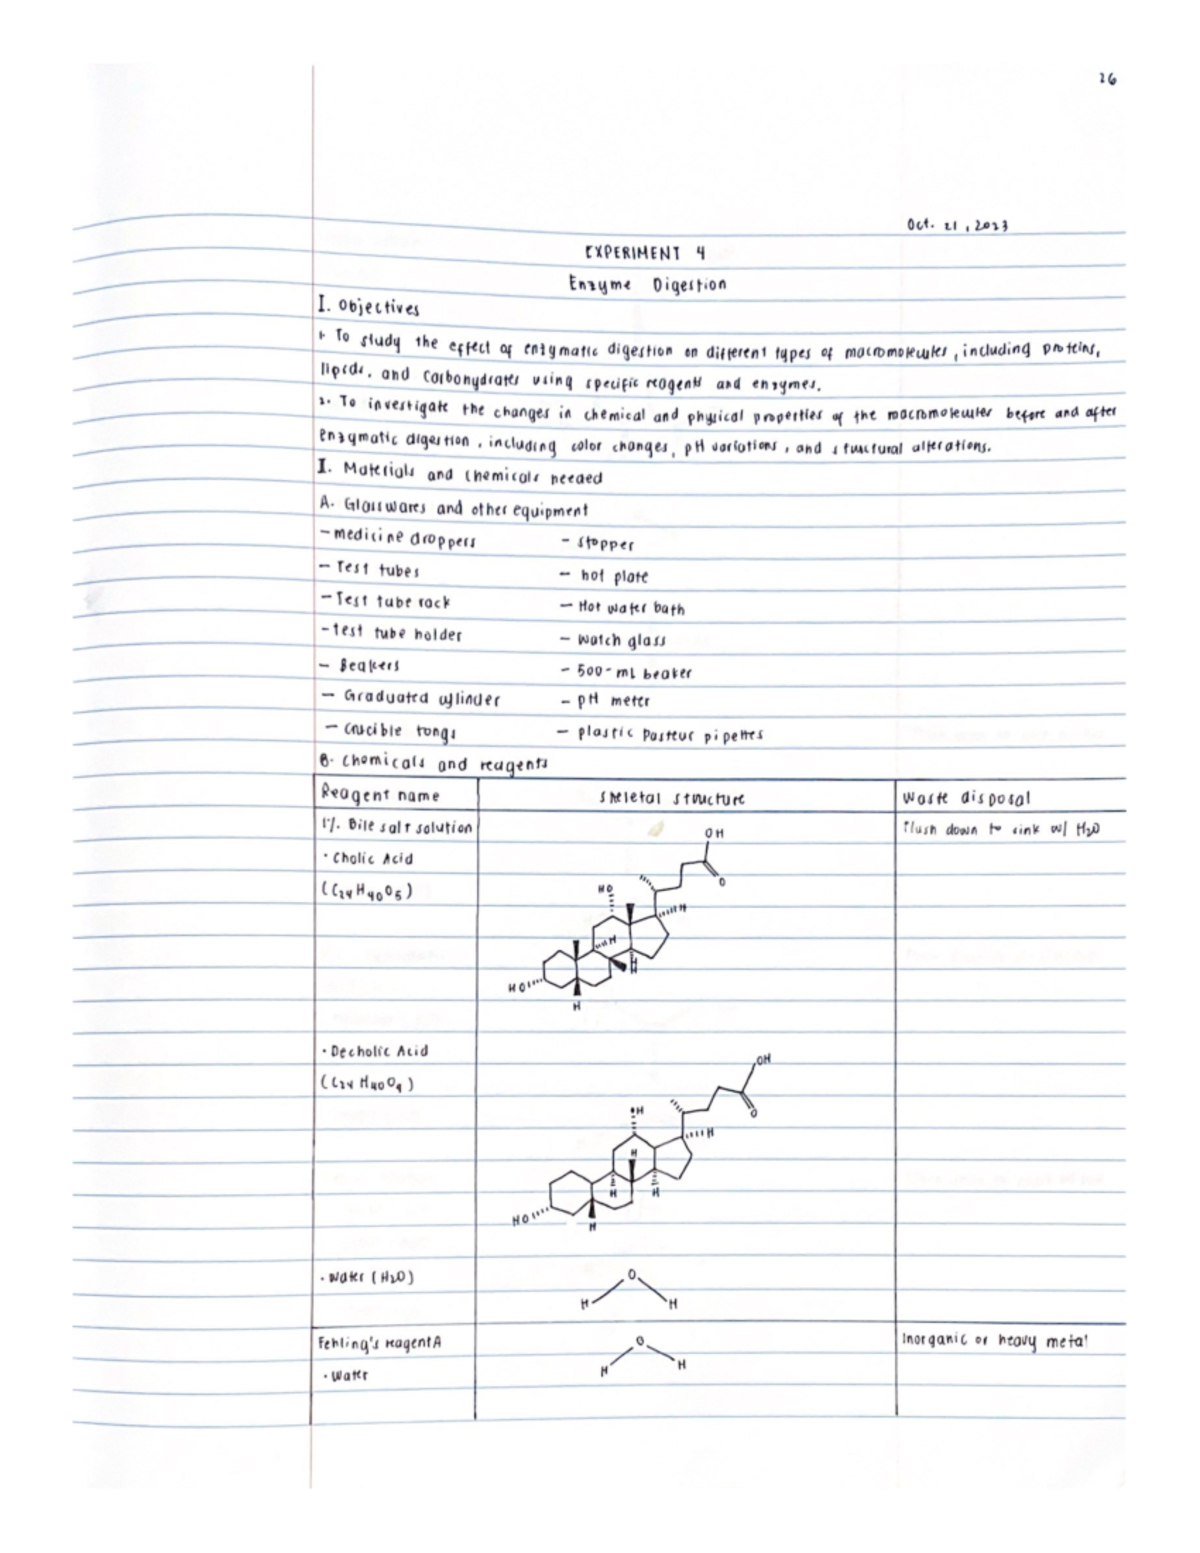 26
Oct. 21, 2023
EXPERIMENT 4
Enzyme Digestion
I. Objectives
1. To study the effect of enzymatic digestion on different types of macromolecules, including proteins,
lipids, and carbohydrates using specific reagents and enzymes.
2. To investigate the changes in chemical and physical properties of the macromolecules before and after
enzymatic digestion, including color changes, pH variations, and structural alterations.
I. Materials and chemicals needed
A. Glasswares and other equipment
- medicine droppers - stopper
- Test tubes - hot plate
- Test tube rack - Hot water bath
- test tube holder - watch glass
- Beakers - 500-mL beaker
- Graduated cylinder - pH meter
- crucible tongs - plastic Pasteur pipettes
B. Chemicals and reagents
Reagent name Skeletal structure Waste disposal
1% Bile salt solution Flush down to sink w/ H2O
OH
• Cholic Acid
O
(C24H40O5) HO
H
H
H
HO
H
• Decholic Acid
OH
(C24H40O4)
O
•H
H
H
H
H
HO
H
• Water (H2O) O
H H
Fehling's reagent A O Inorganic or heavy metal
H H
• Water